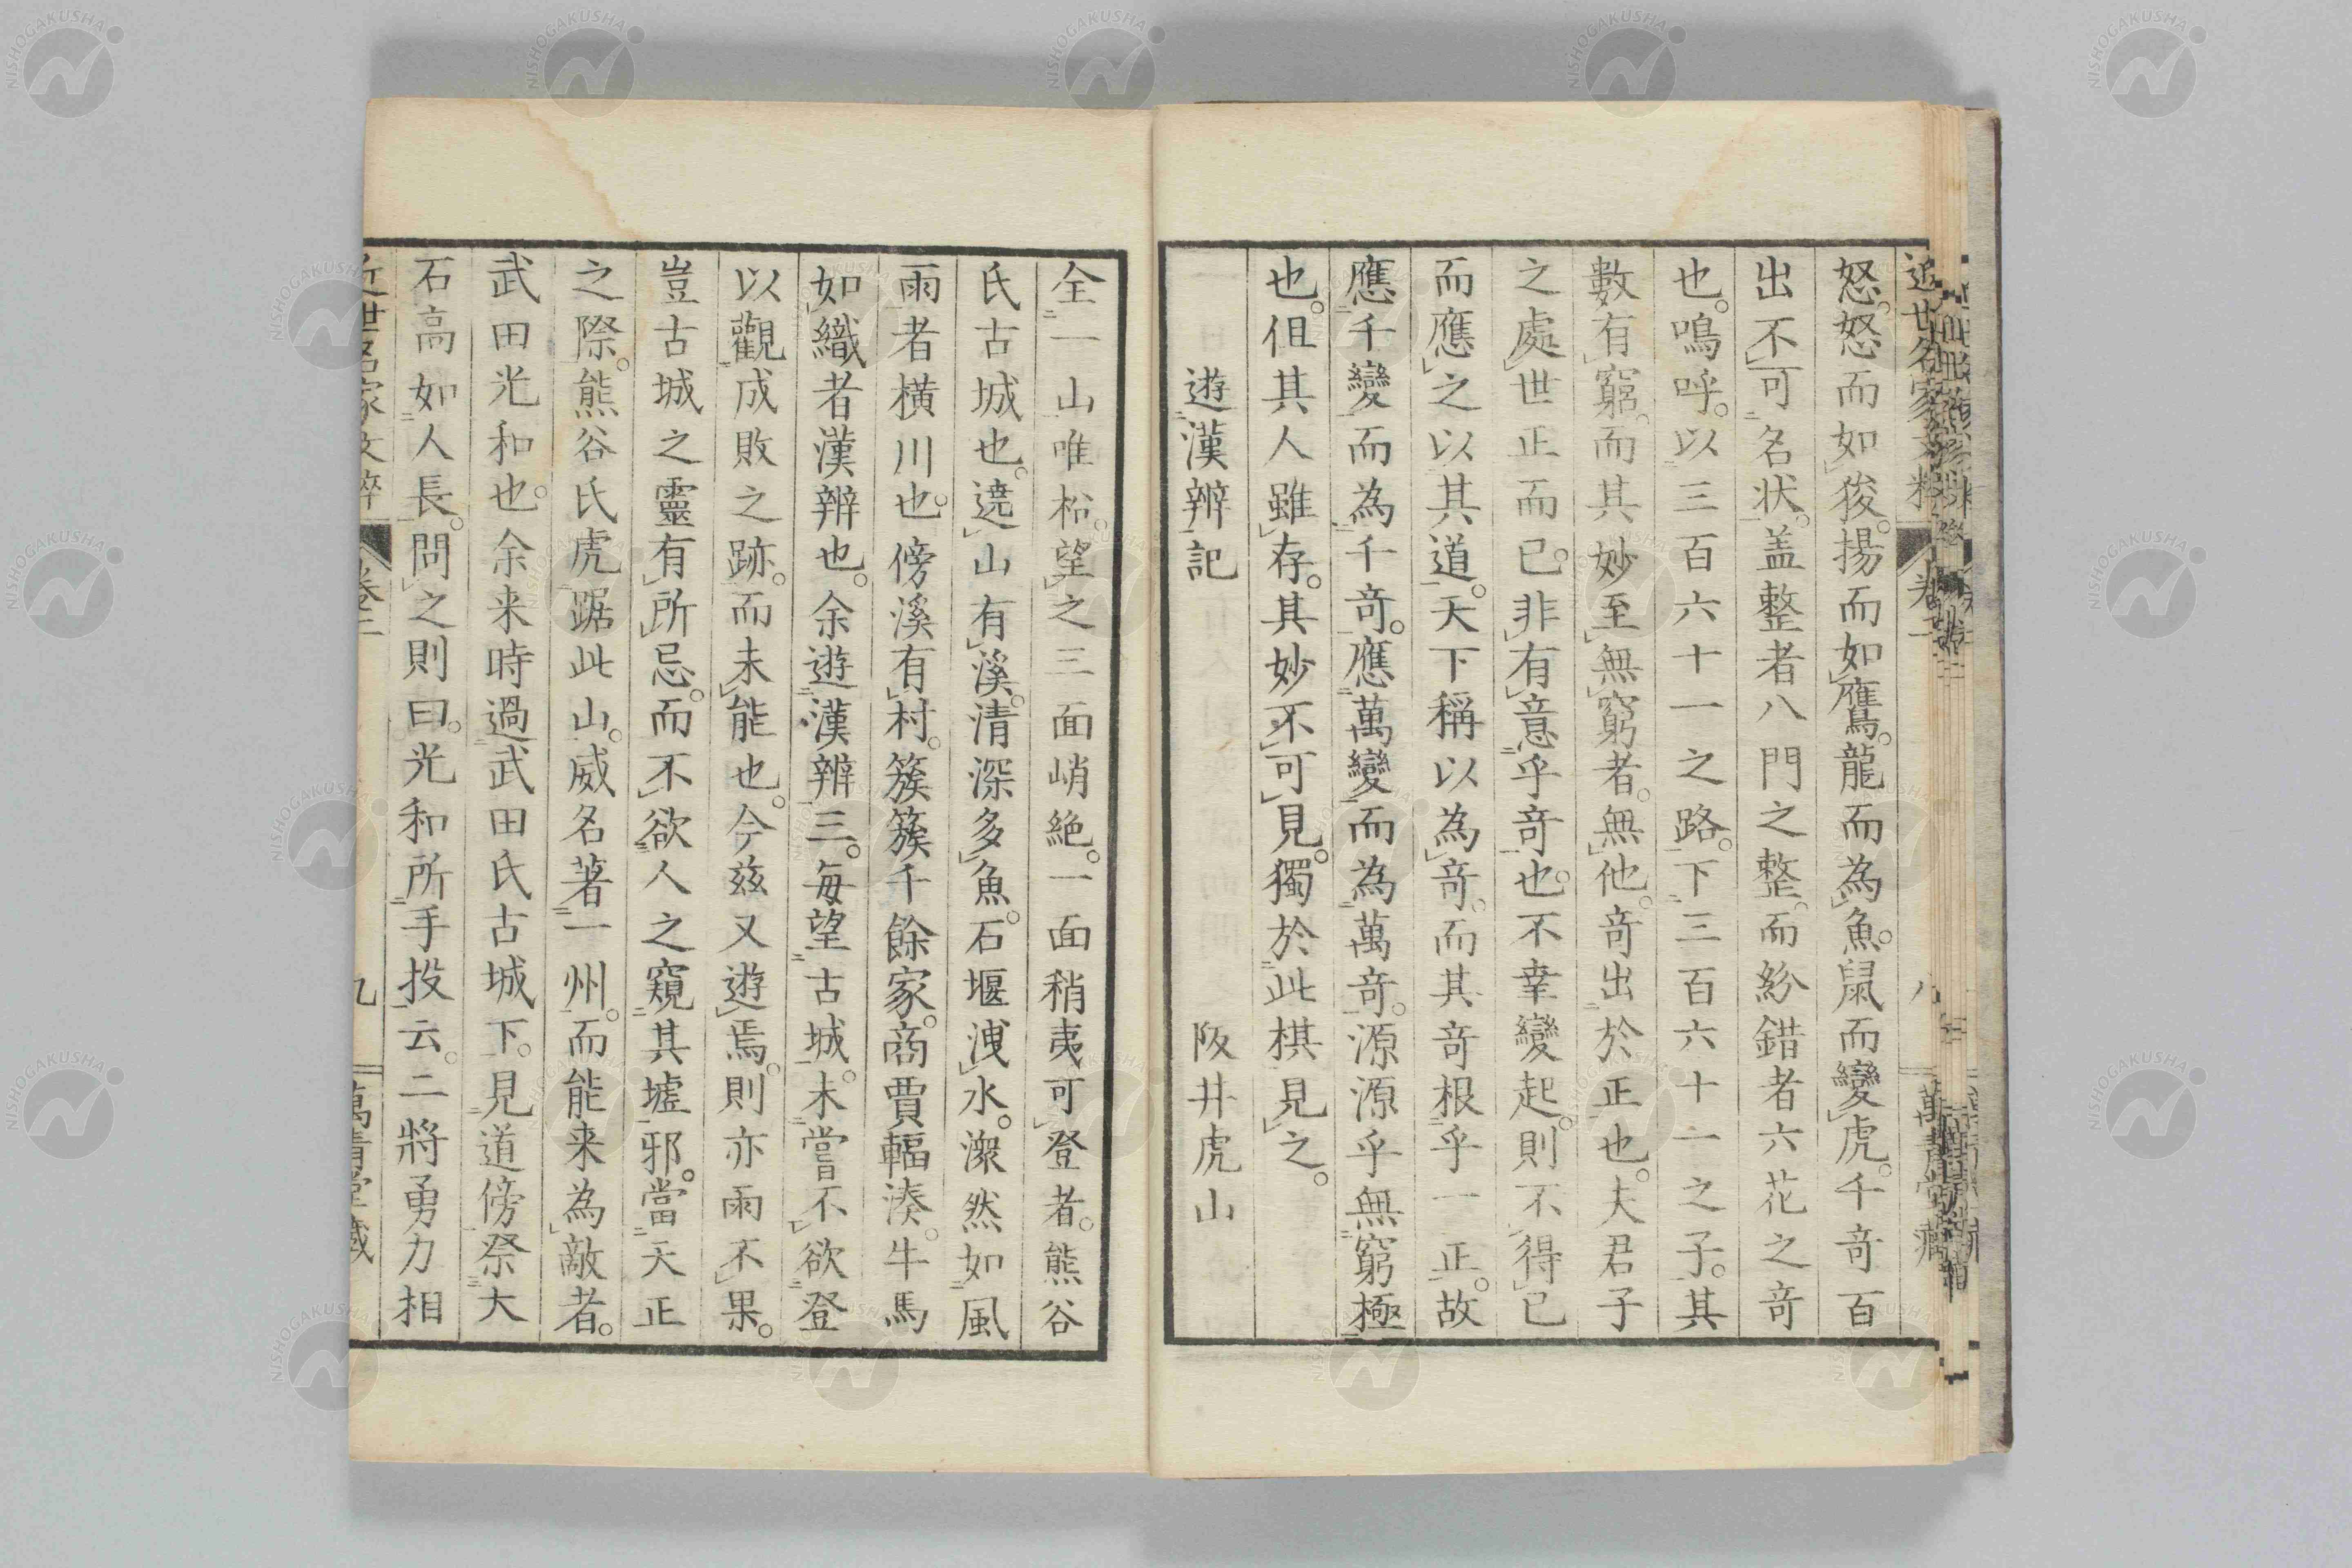 怒。怒而如狻。揚而如鷹。龍而為魚。鼠而變虎。千竒百
出不可名状。盖整者八門之整。而紛錯者六花之竒
也。鳴呼。以三百六十一之路。下三百六十一之子。其
數有窮。而其妙至無窮者。無他。竒出於正也。夫君子
之處世正而已。非有意乎竒也。不幸變起。則不得已
而應之以其道。天下稱以為竒。而其竒根乎一正。故
應千變而為千竒。應萬變而為萬竒。源源乎無窮極
也。但其人雖存。其妙不可見。獨於此棋見之。
遊漢辨記 阪井虎山
全一山唯松。望之三面峭絶。一面稍夷可登者。熊谷
氏古城也。遶山有溪。清深多魚。石堰洩水。潨然如風
雨者横川也。傍溪有村。簇簇千餘家。商賈輻湊。牛馬
如織者漢辨也。余遊漢辨三。毎望古城。未嘗不欲登
以觀成敗之跡。而未能也。今兹又遊焉。則亦雨不果。
豈古城之靈有所忌。而不欲人之窺其墟邪。當天正
之際。熊谷氏虎踞此山。威名著一州。而能来為敵者。
武田光和也。余来時過武田氏古城下。見道傍祭大
石高如人長。問之則曰。光和所手投云。二將勇力相
近世名家文粹 卷二 九 萬青堂藏
NISHOGAKUSHA